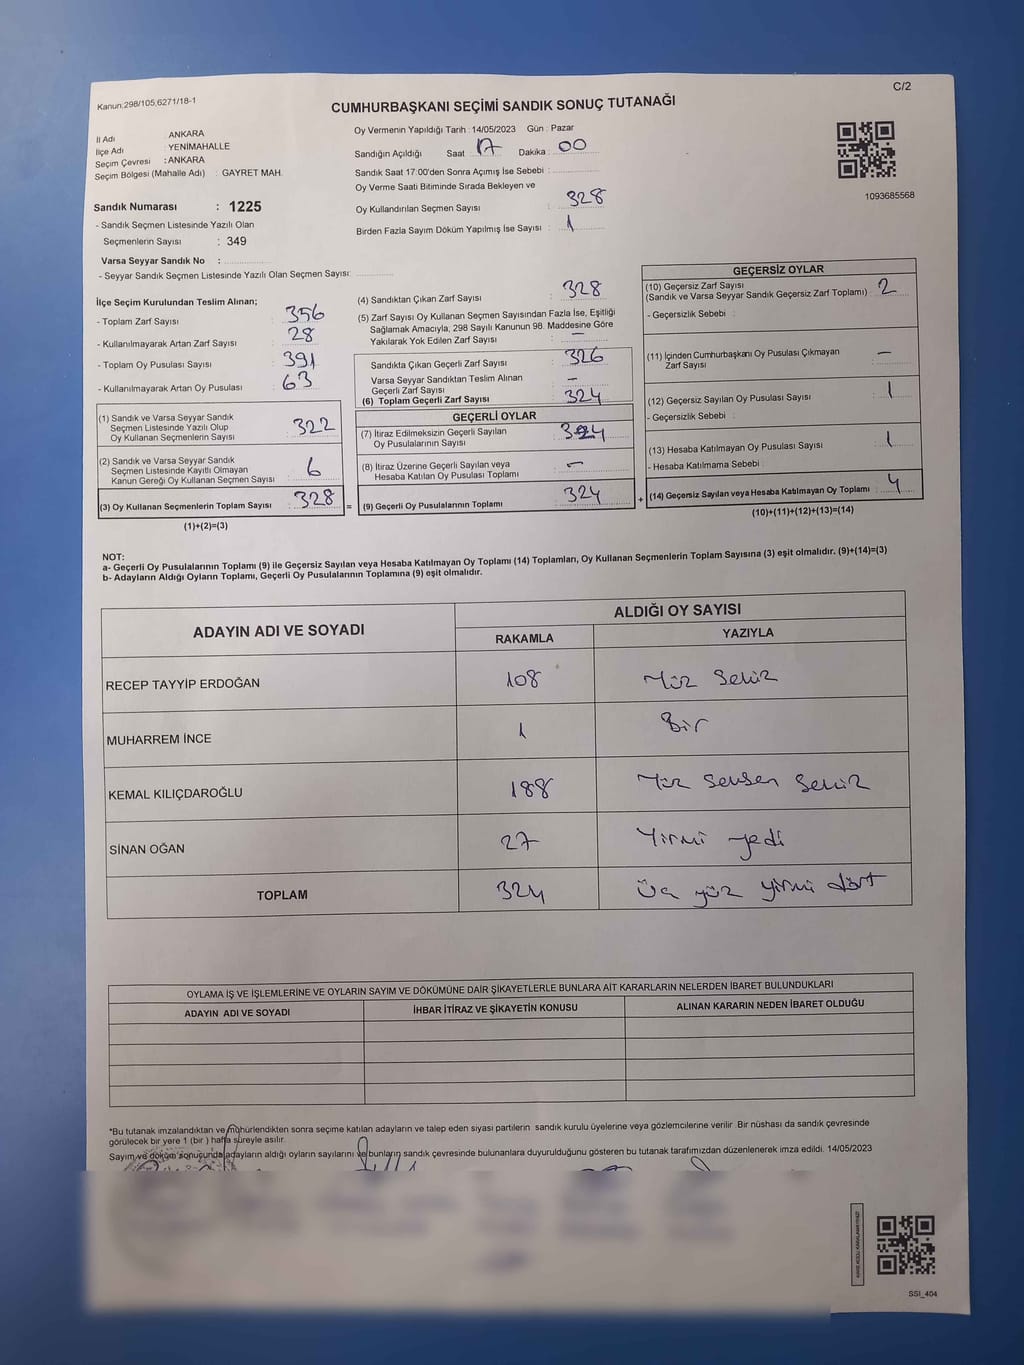 Kanun:298/105,6271/18-1
C/2
CUMHURBAŞKANI SEÇİMİ SANDIK SONUÇ TUTANAĞI
İl Adı : ANKARA
İlçe Adı : YENİMAHALLE
Seçim Çevresi : ANKARA
Seçim Bölgesi (Mahalle Adı) : GAYRET MAH.
Oy Vermenin Yapıldığı Tarih : 14/05/2023 Gün : Pazar
Sandığın Açıldığı Saat 17 Dakika : 00
Sandık Saat 17:00'den Sonra Açımış İse Sebebi :
Oy Verme Saati Bitiminde Sırada Bekleyen ve
Oy Kullandırılan Seçmen Sayısı : 328
Birden Fazla Sayım Döküm Yapılmış İse Sayısı : 1
1093685568
Sandık Numarası : 1225
- Sandık Seçmen Listesinde Yazılı Olan
Seçmenlerin Sayısı : 349
Varsa Seyyar Sandık No :
- Seyyar Sandık Seçmen Listesinde Yazılı Olan Seçmen Sayısı:
İlçe Seçim Kurulundan Teslim Alınan;
- Toplam Zarf Sayısı : 356
- Kullanılmayarak Artan Zarf Sayısı : 28
- Toplam Oy Pusulası Sayısı : 391
- Kullanılmayarak Artan Oy Pusulası : 63
(1) Sandık ve Varsa Seyyar Sandık
Seçmen Listesinde Yazılı Olup
Oy Kullanan Seçmenlerin Sayısı : 322
(2) Sandık ve Varsa Seyyar Sandık
Seçmen Listesinde Kayıtlı Olmayan
Kanun Gereği Oy Kullanan Seçmen Sayısı : 6
(3) Oy Kullanan Seçmenlerin Toplam Sayısı : 328 =
(1)+(2)=(3)
(4) Sandıktan Çıkan Zarf Sayısı : 328
(5) Zarf Sayısı Oy Kullanan Seçmen Sayısından Fazla İse, Eşitliği
Sağlamak Amacıyla, 298 Sayılı Kanunun 98. Maddesine Göre
Yakılarak Yok Edilen Zarf Sayısı : –
Sandıkta Çıkan Geçerli Zarf Sayısı : 326
Varsa Seyyar Sandıktan Teslim Alınan
Geçerli Zarf Sayısı : –
(6) Toplam Geçerli Zarf Sayısı : 324
GEÇERLİ OYLAR
(7) İtiraz Edilmeksizin Geçerli Sayılan
Oy Pusulalarının Sayısı : 324
(8) İtiraz Üzerine Geçerli Sayılan veya
Hesaba Katılan Oy Pusulası Toplamı : –
(9) Geçerli Oy Pusulalarının Toplamı : 324 +
GEÇERSİZ OYLAR
(10) Geçersiz Zarf Sayısı
(Sandık ve Varsa Seyyar Sandık Geçersiz Zarf Toplamı) : 2
- Geçersizlik Sebebi :
(11) İçinden Cumhurbaşkanı Oy Pusulası Çıkmayan
Zarf Sayısı : –
(12) Geçersiz Sayılan Oy Pusulası Sayısı : 1
- Geçersizlik Sebebi :
(13) Hesaba Katılmayan Oy Pusulası Sayısı : 1
- Hesaba Katılmama Sebebi :
(14) Geçersiz Sayılan veya Hesaba Katılmayan Oy Toplamı : 4
(10)+(11)+(12)+(13)=(14)
NOT:
a- Geçerli Oy Pusulalarının Toplamı (9) ile Geçersiz Sayılan veya Hesaba Katılmayan Oy Toplamı (14) Toplamları, Oy Kullanan Seçmenlerin Toplam Sayısına (3) eşit olmalıdır. (9)+(14)=(3)
b- Adayların Aldığı Oyların Toplamı, Geçerli Oy Pusulalarının Toplamına (9) eşit olmalıdır.
ADAYIN ADI VE SOYADI
ALDIĞI OY SAYISI
RAKAMLA YAZIYLA
RECEP TAYYİP ERDOĞAN 108 Yüz Sekiz
MUHARREM İNCE 1 Bir
KEMAL KILIÇDAROĞLU 188 Yüz Seksen Sekiz
SİNAN OĞAN 27 Yirmi yedi
TOPLAM 324 Üç yüz yirmi dört
OYLAMA İŞ VE İŞLEMLERİNE VE OYLARIN SAYIM VE DÖKÜMÜNE DAİR ŞİKAYETLERLE BUNLARA AİT KARARLARIN NELERDEN İBARET BULUNDUKLARI
ADAYIN ADI VE SOYADI İHBAR İTİRAZ VE ŞİKAYETİN KONUSU ALINAN KARARIN NEDEN İBARET OLDUĞU
*Bu tutanak imzalandıktan ve mühürlendikten sonra seçime katılan adayların ve talep eden siyasi partilerin sandık kurulu üyelerine veya gözlemcilerine verilir. Bir nüshası da sandık çevresinde
görülecek bir yere 1 (bir ) hafta süreyle asılır.
Sayım ve döküm sonuçunda adayların aldığı oyların sayılarını ve bunların sandık çevresinde bulunanlara duyurulduğunu gösteren bu tutanak tarafımızdan düzenlenerek imza edildi. 14/05/2023
SSI_404